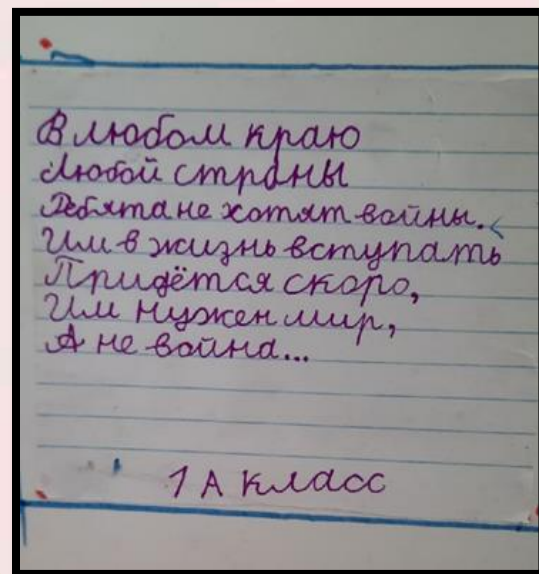 В любом краю
Любой страны
Ребята не хотят войны.
Им в жизнь вступать
Придётся скоро,
Им нужен мир,
А не война...
1 А класс